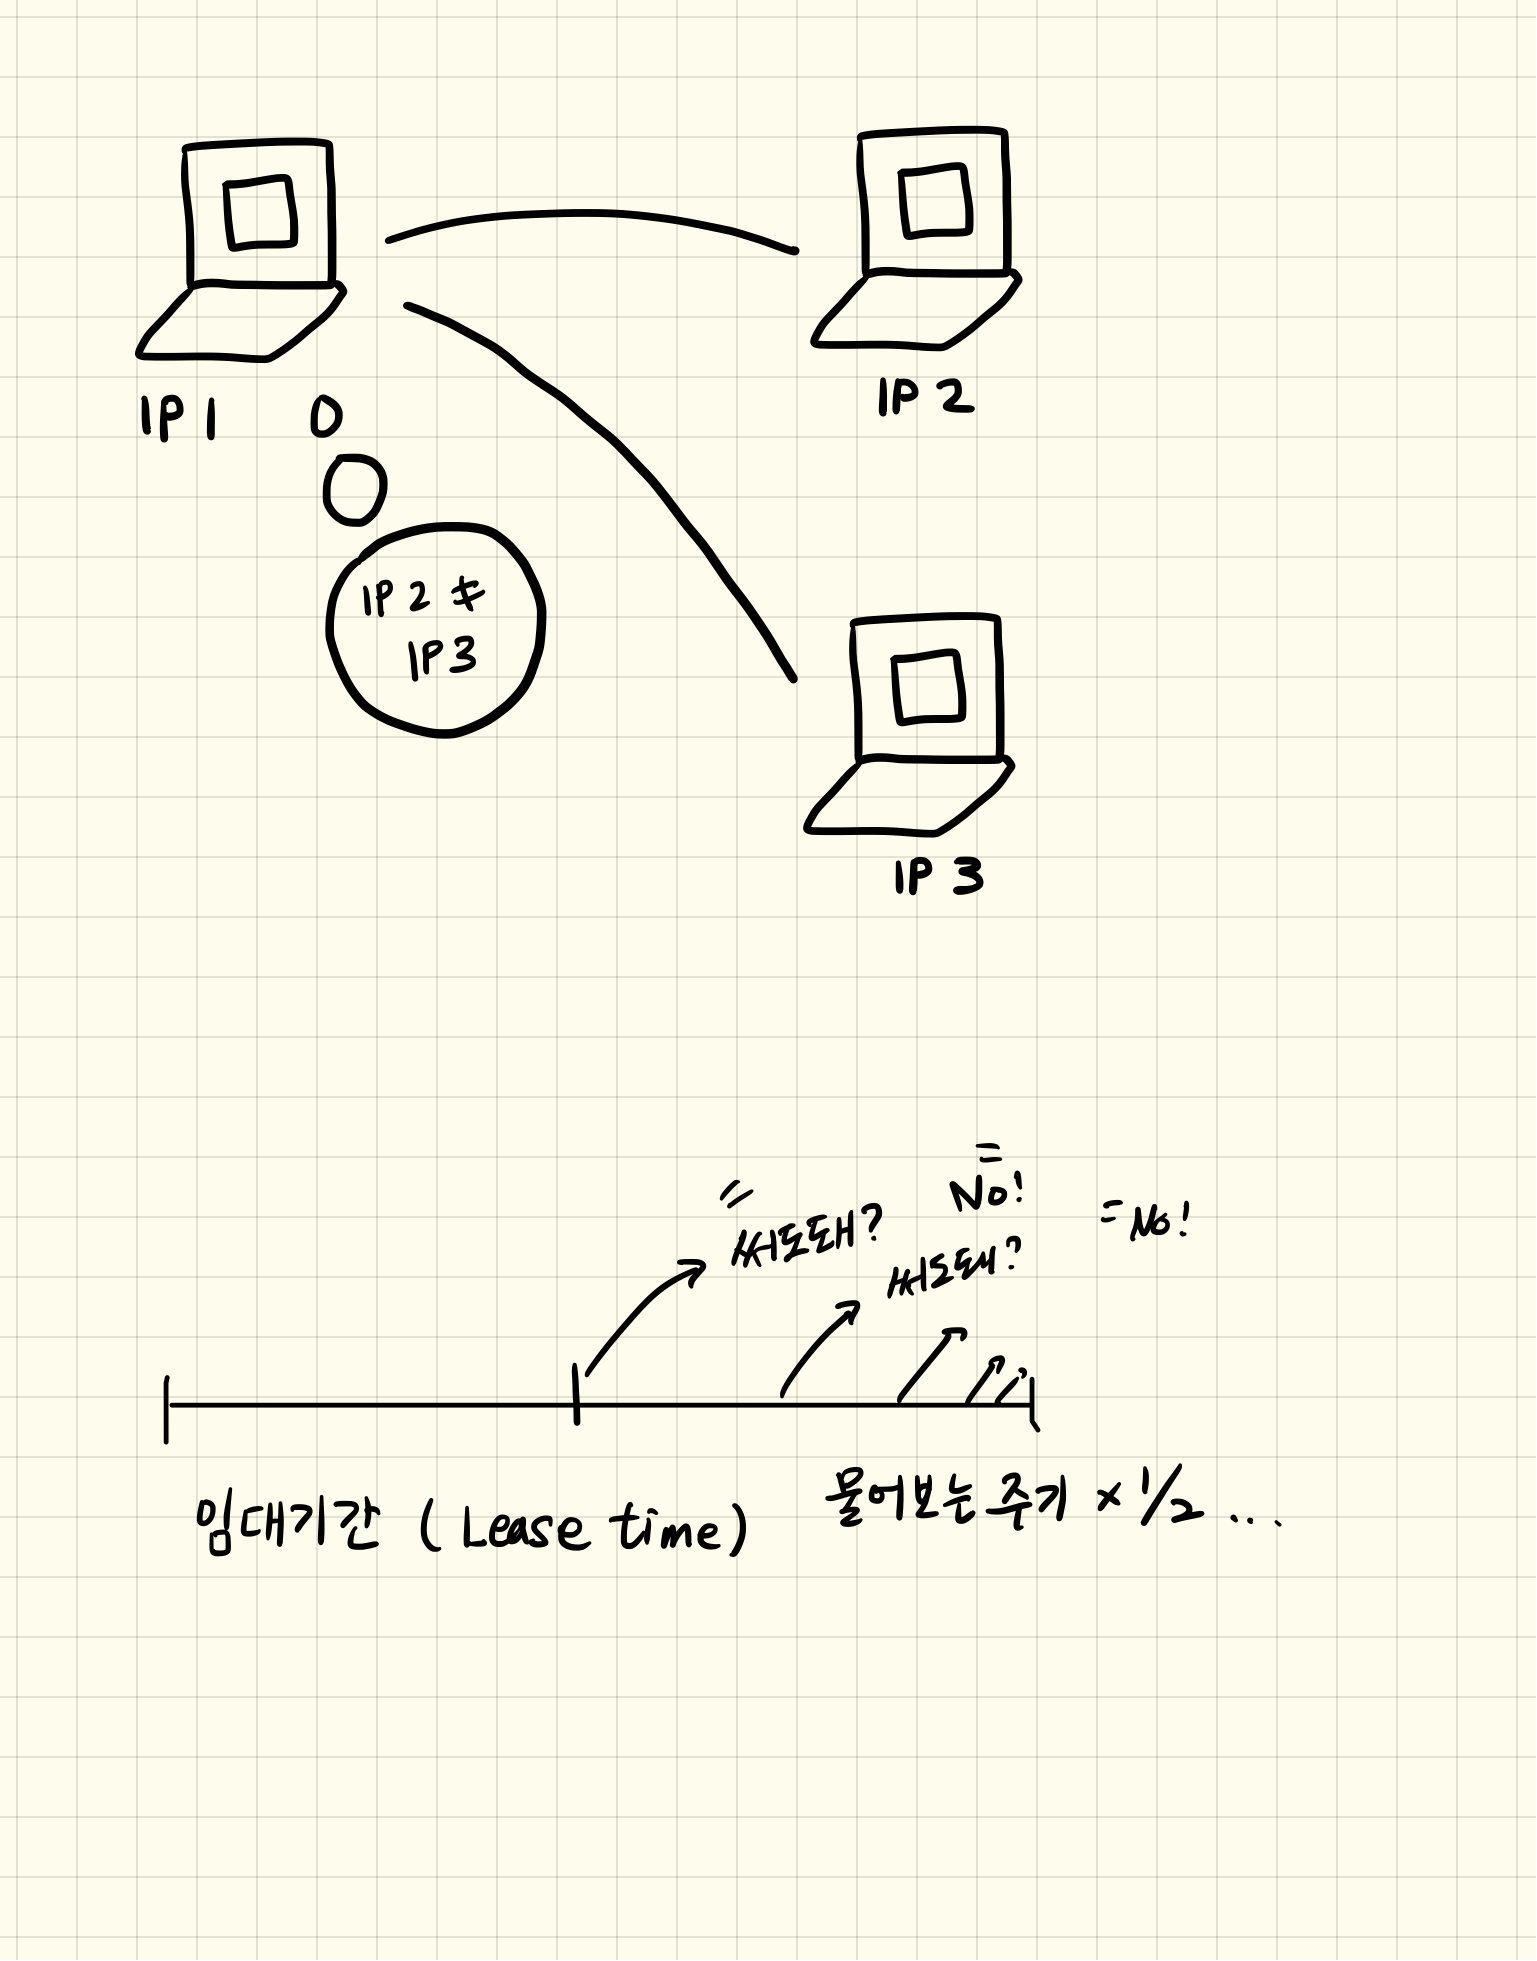 IP 1
IP 2
IP 2 ≠
IP3
IP 3
No!
= No!
써도돼?
써도돼?
임대기간 (Lease time)
물어보는 주기 × 1/2 ...